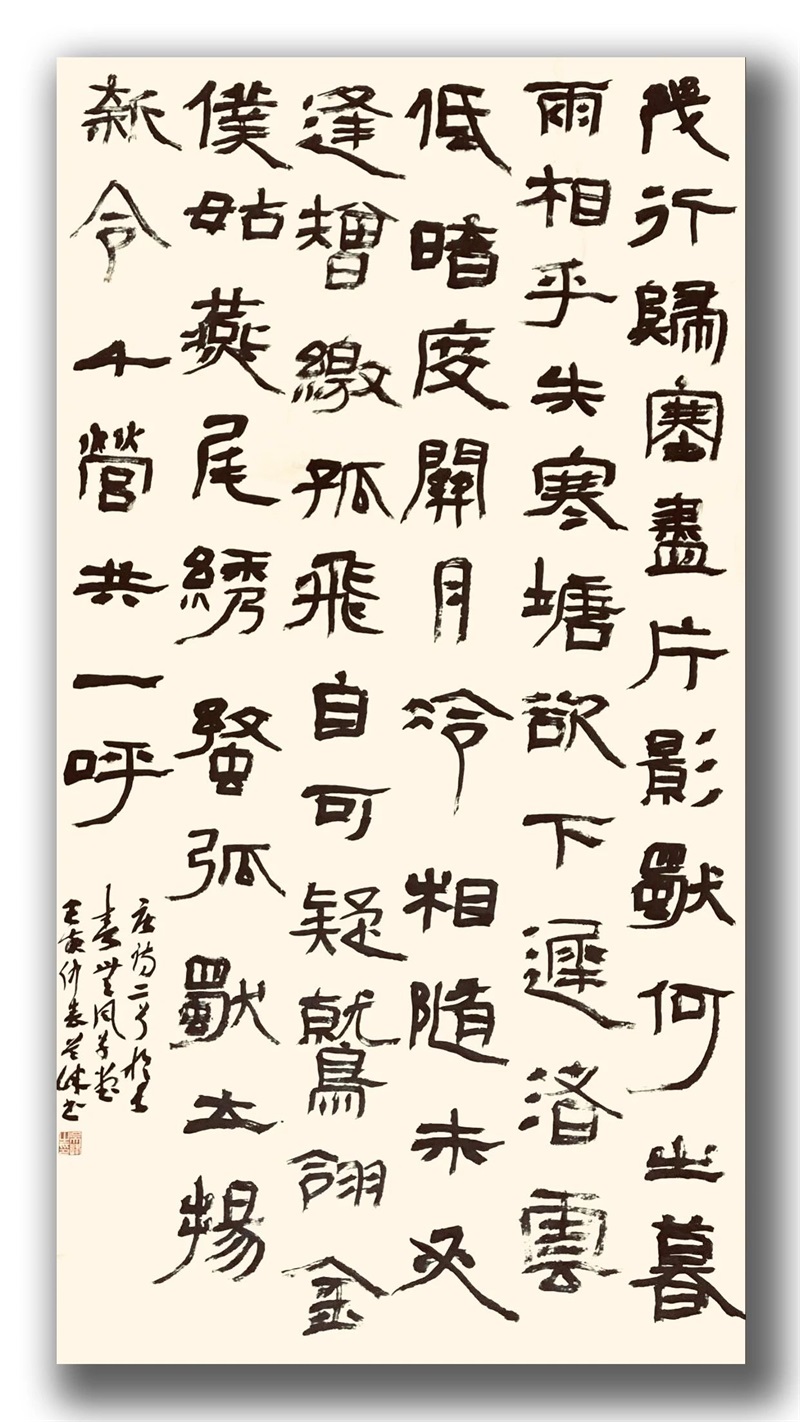 幾行歸塞盡片影獨何之暮
雨相乎失寒塘欲下遲洛雲
低暗度關月冷相隨未必
逢矰繳孤飛自可疑鷲翎金
僕姑燕尾綉蝥弧獨立揚
新令千營共一呼
唐詩二首於長
春
壬寅仲春
書